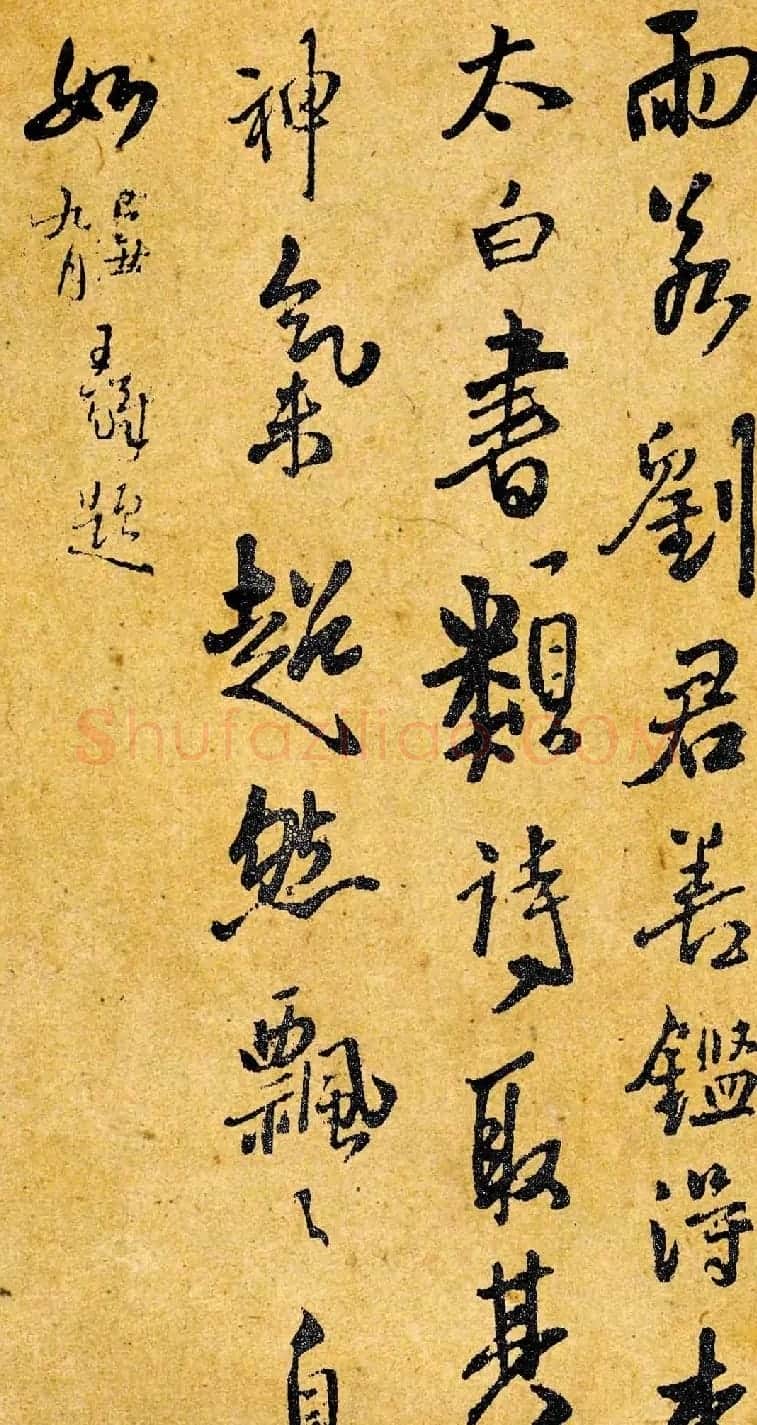 雨若劉君善鑑得李
太白書類詩取其
神氣超然飄〻自
如
己丑
九月
王鐸題
Shufaziliao.COM